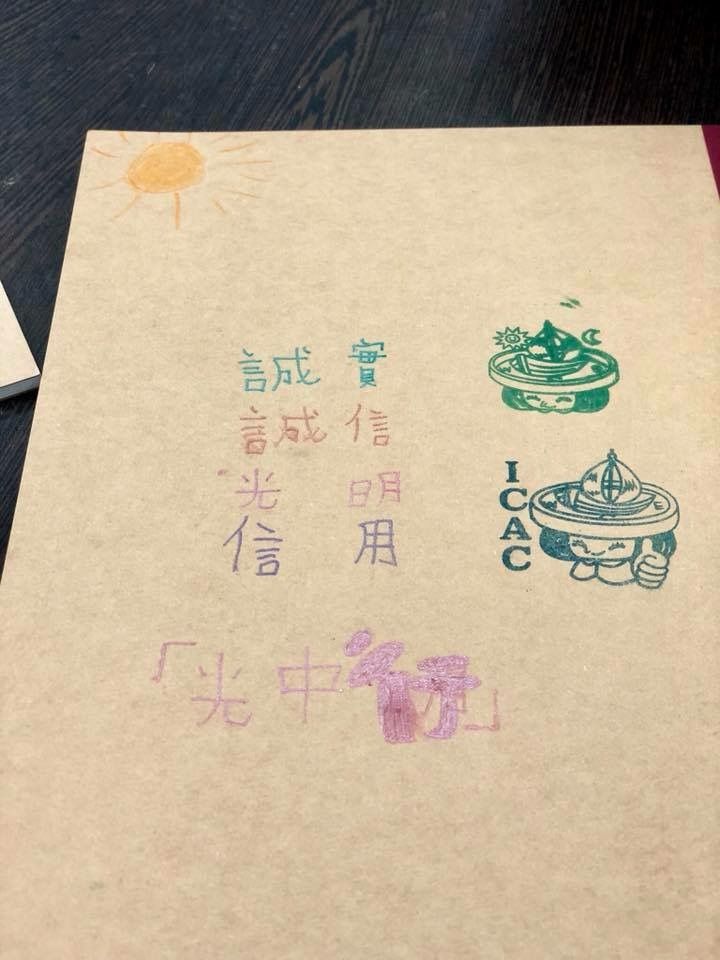 誠實
誠信
光明
信用
ICAC
「光中行」